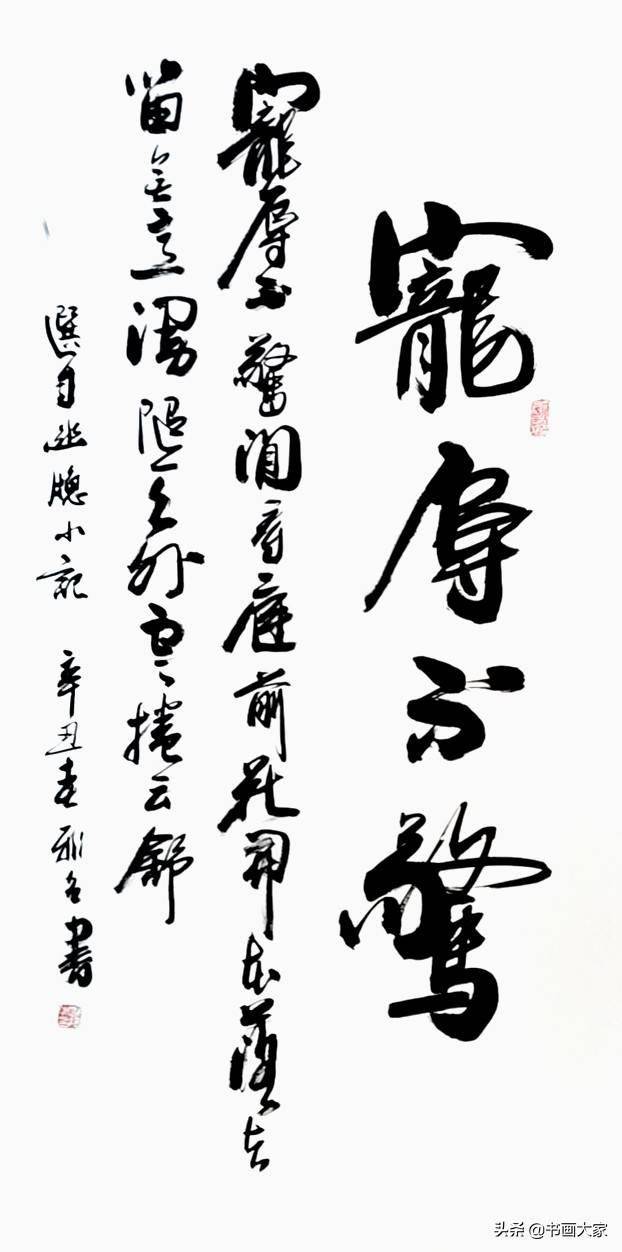 寵辱不驚
寵辱不驚閒看庭前花開花落去
留無意漫隨天外雲捲云舒
選自幽牕小記 辛丑春 書
头条 @书画大家